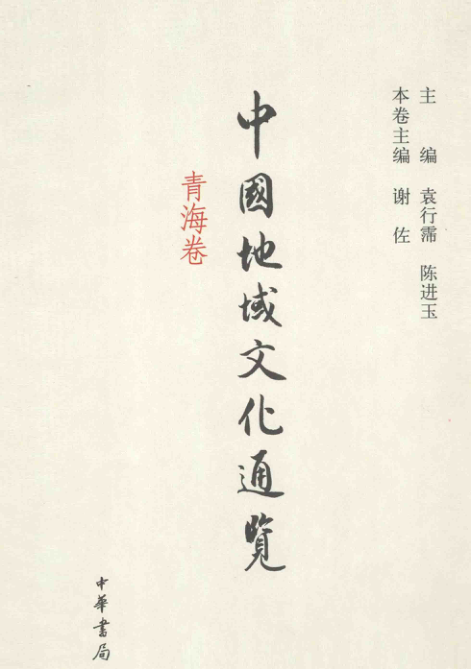 主 编 袁行霈 陈进玉
本卷主编 谢 佐
中國地域文化通覽
青海卷
中華書局